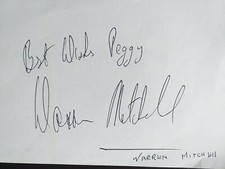 Best Wishes Peggy
Warren Mitchell
WARREN MITCHELL